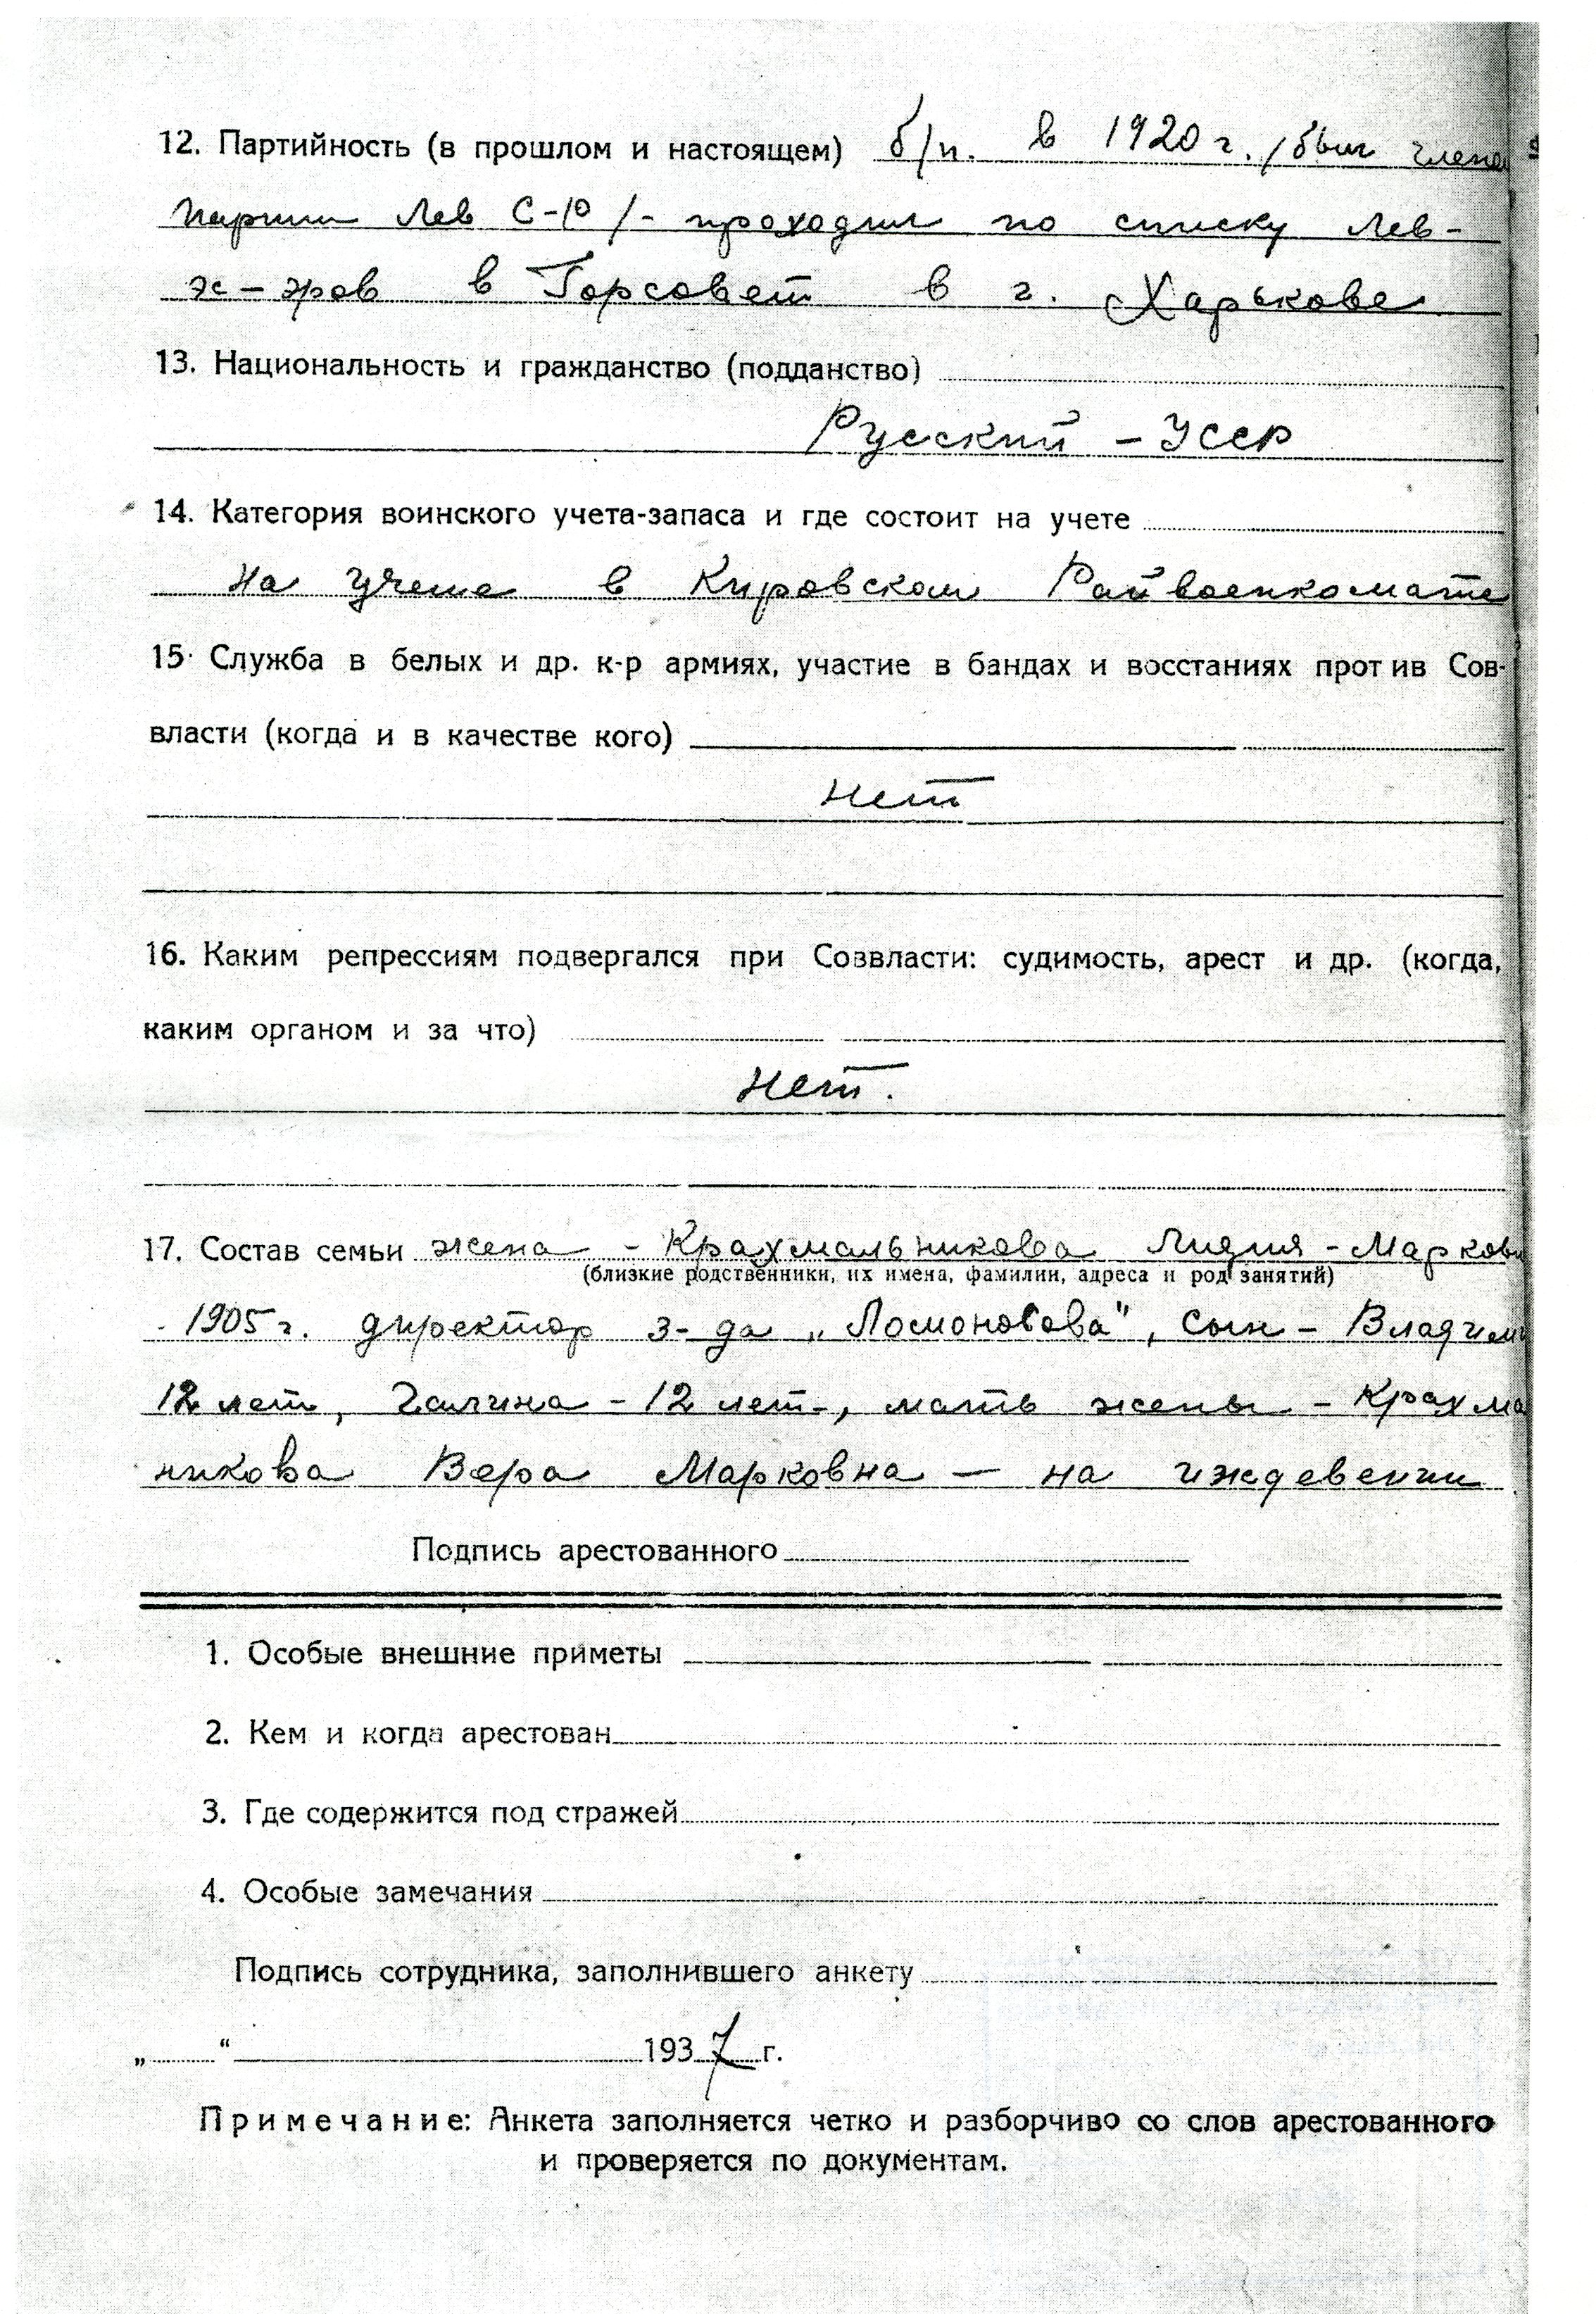 12. Партийность (в прошлом и настоящем) б/п. в 1920 г. /был члено
партии Лев С-Р/- проходил по списку Лев-
эс-эров в Горсовет в г. Харькове
13. Национальность и гражданство (подданство)
Русский - УССР
14. Категория воинского учета-запаса и где состоит на учете
на учете в Кировском Райвоенкомате
15. Служба в белых и др. к-р армиях, участие в бандах и восстаниях против Сов-
власти (когда и в качестве кого)
нет
16. Каким репрессиям подвергался при Созвласти: судимость, арест и др. (когда,
каким органом и за что)
нет.
17. Состав семьи жена - Крахмальникова Лидия - Маркови
(близкие родственники, их имена, фамилии, адреса и род занятий)
1905 г. директор з-да „Ломоносова", сын - Владими
12 лет, Галина - 12 лет, мать жены - Крахма
никова Вера Марковна — на иждевении
Подпись арестованного
1. Особые внешние приметы
2. Кем и когда арестован
3. Где содержится под стражей
4. Особые замечания
Подпись сотрудника, заполнившего анкету
„ “ 1937 г.
Примечание: Анкета заполняется четко и разборчиво со слов арестованного
и проверяется по документам.